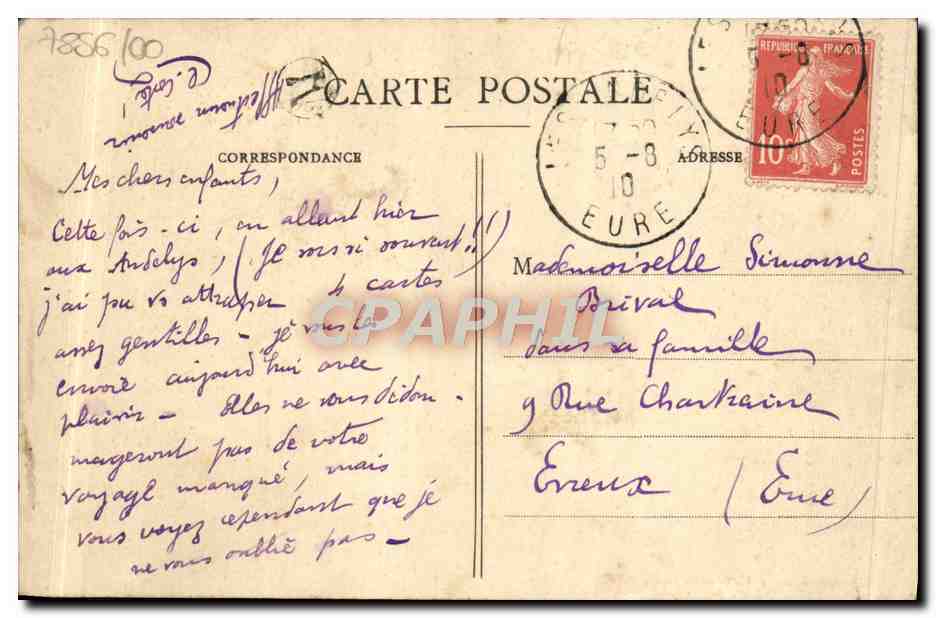 7886/00
Affectueux souvenir
CARTE POSTALE
CORRESPONDANCE
ADRESSE
REPUBLIQUE FRANÇAISE
10c
POSTES
5 -8
10
EURE
5 -8
10
EURE
Mes chers enfants,
Cette fois-ci, en allant hier
aux Andelys, (Je vais si souvent!!)
j'ai pu vs attraper 4 cartes
assez gentilles - je vous les
envoie aujourd'hui avec
plaisir - Elles ne vous dédom-
mageront pas de votre
voyage manqué, mais
vous voyez cependant que je
ne vous oublie pas -
Mademoiselle Simonne
Brival
dans sa famille
9 Rue Chartraine
Evreux (Eure)
CPAPHIL